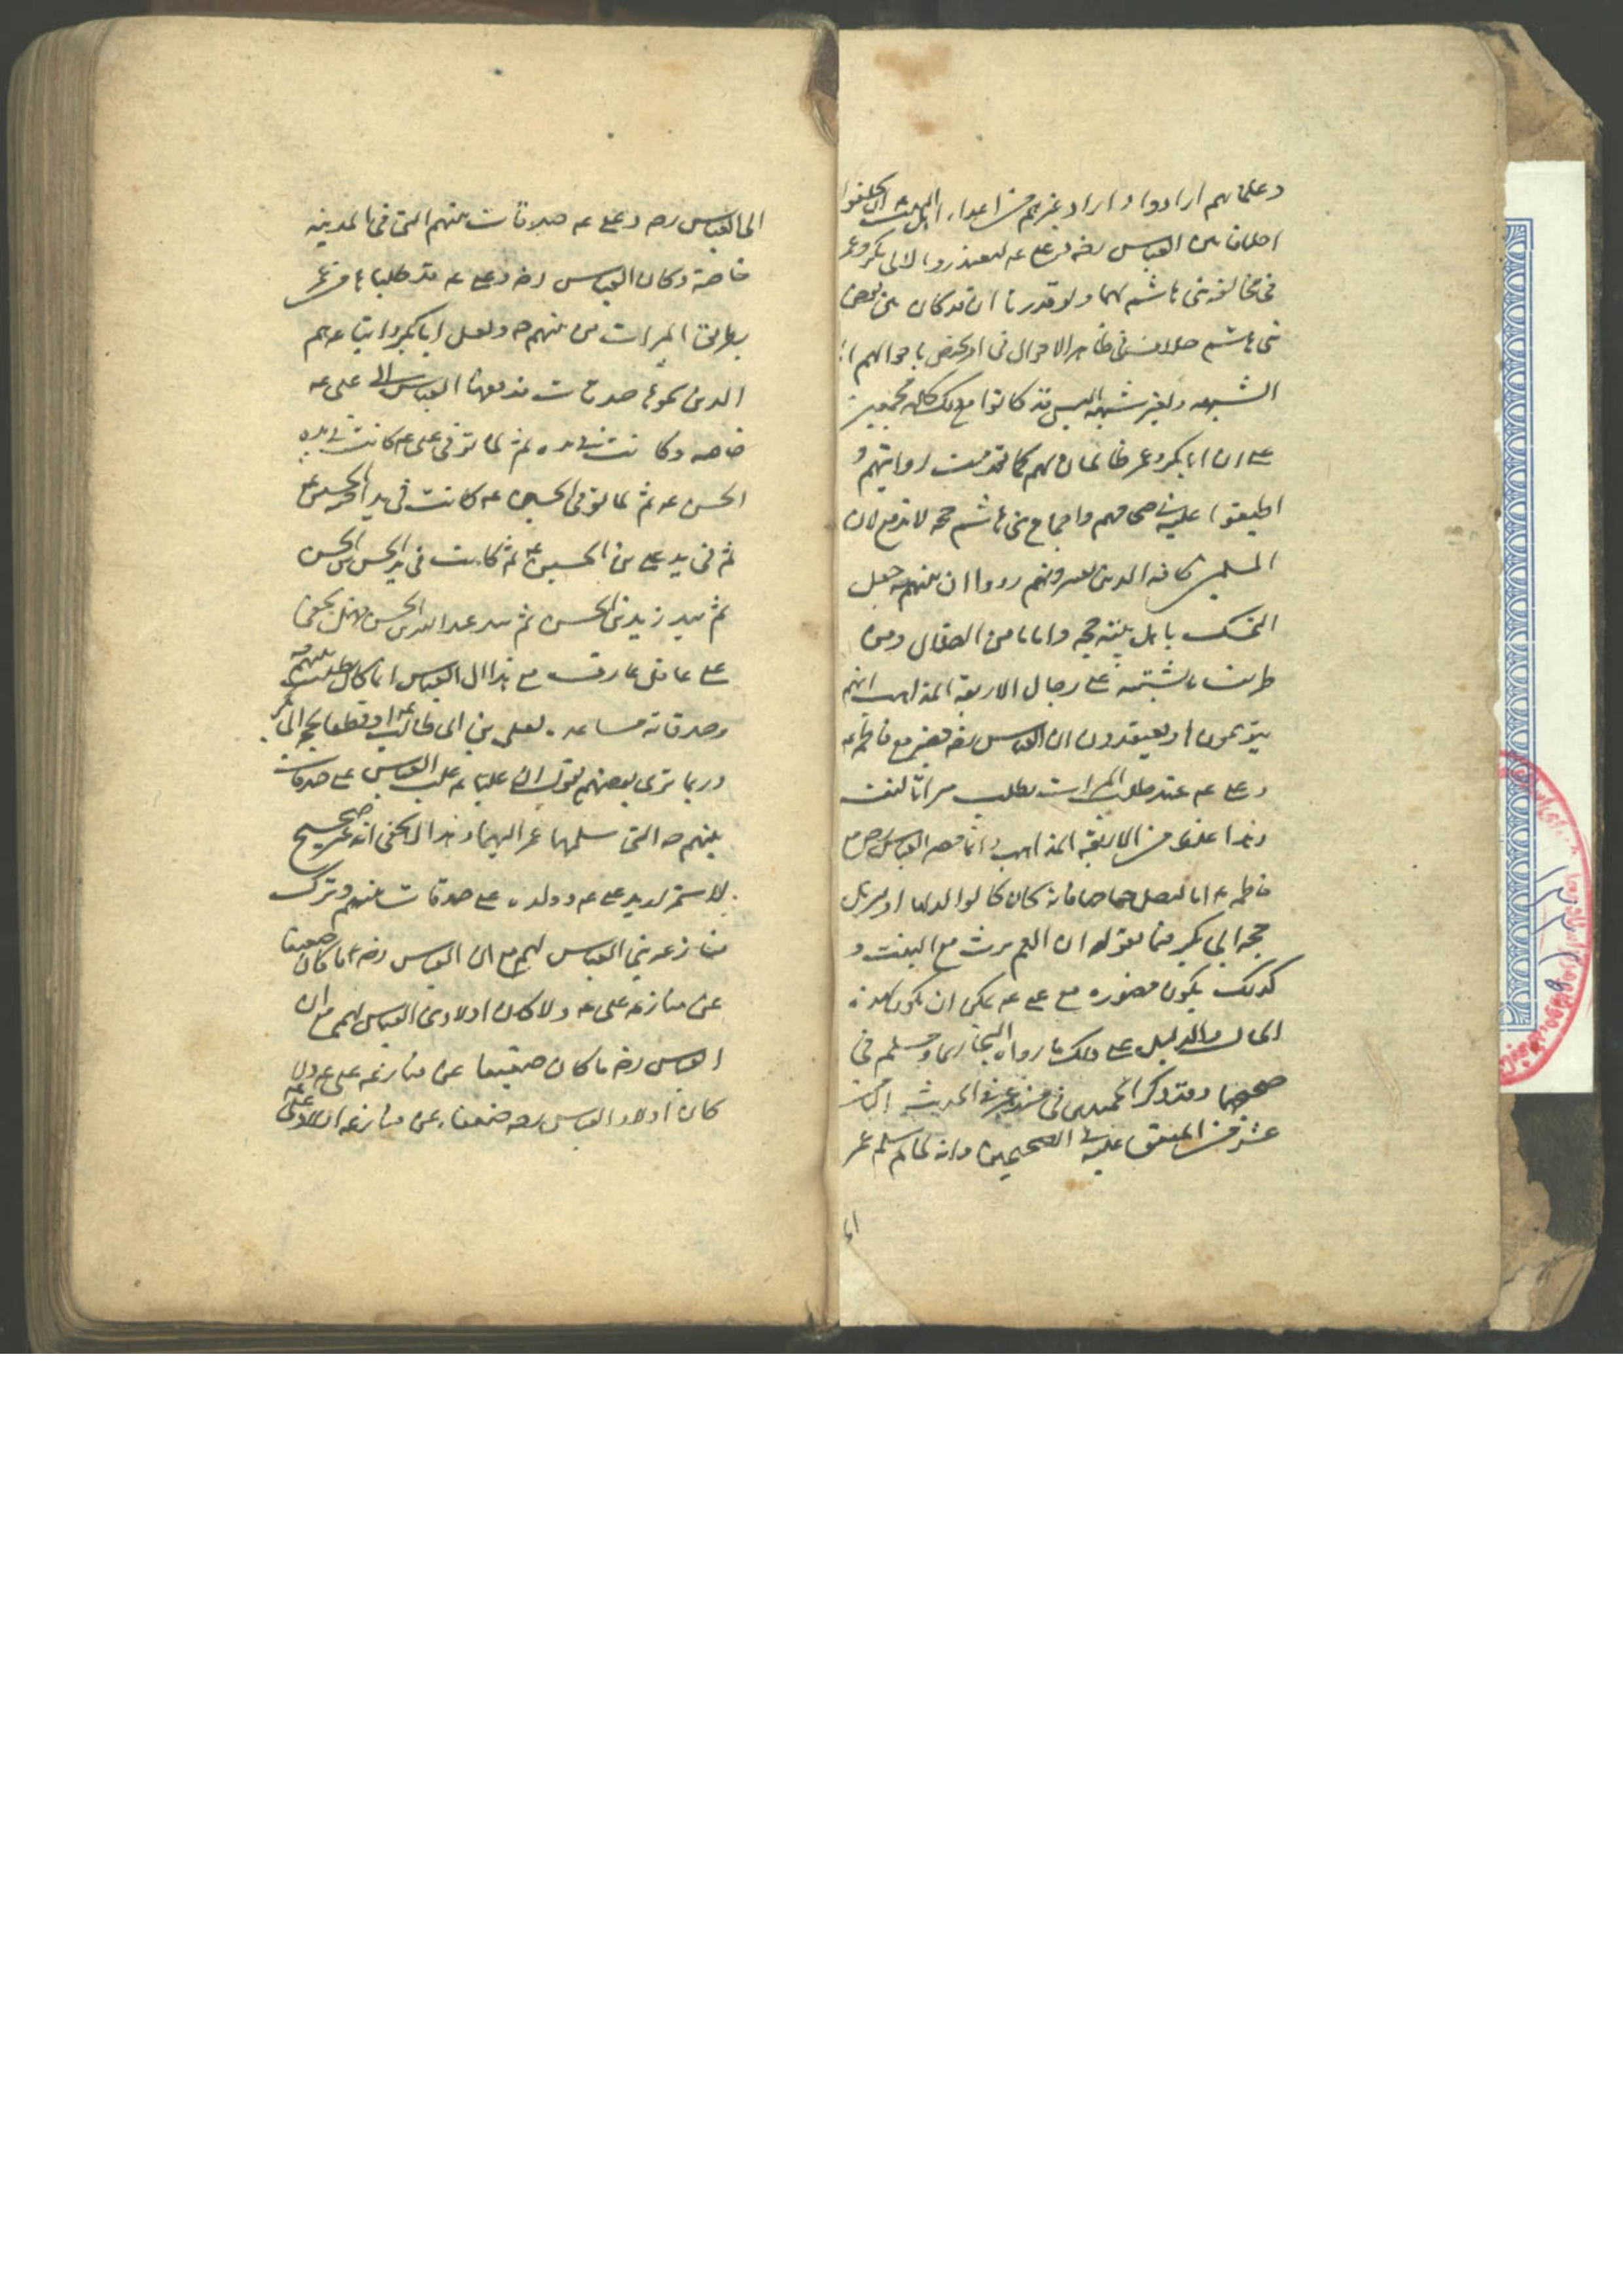 وعلمائهم ارادوا واراد غيرهم من اعداء اهل البيت ان يختلقوا
اختلافا بين العباس رضه وعلي عه ليعتذروا لابي بكر وعمر
في مخالفة بني هاشم لهما ولو قدرنا انه قد كان بين بعض
بني هاشم خلاف في ظاهر الاحوال فيما يختص باموالهم اما
لشبهة او لغير شبهة اليس قد كانوا مع ذلك كلهم مجمعين
على ان ابا بكر وعمر ظالمان لهم كما تقدمت روايتهم و
اطبقوا عليه في صحاحهم واجماع بني هاشم حجة لا تدفع لان
المسلمين كافة الذين يعتد بهم رووا ان نبيهم صه جعل
التمسك باهل بيته حجة وامانا من الضلال ومن
طريف ما يشتبه على رجال الاربعة المذاهب انهم
يتوهمون او يعتقدون ان العباس رضه حضر مع فاطمة عه
وعلي عه عند طلب الميراث يطلب ميراثا لنفسه
وهذا غلط من الاربعة المذاهب وانما حضر العباس رض مع
فاطمة عه اما ليصل جناحها فانه كان كالوالد لها او ليزيل
حجة ابي بكر فيما يقوله ان العم يرث مع البنت و
كذلك يكون حضوره مع علي عه يمكن ان يكون لهذه
الحال والدليل على ذلك ما رواه البخاري ومسلم في
صحيحهما وقد ذكر الحميدي في مسند عمر في الحديث الثامن
عشر من المتفق عليه في الصحيحين وانه لما سلم عمر
الى العباس رضه وعلي عه صدقات نبيهم التي في المدينة
خاصة وكان العباس رضه وعلي عه قد طلباها من عمر
بطريق الميراث من نبيهم صه ولعل ابا بكر واتباعهم
الذين سموها صدقات فدفعها العباس الى علي عه
خاصة وكانت في يده ثم لما توفي علي عه كانت في يد
الحسن عه ثم لما توفي الحسن عه كانت في يد اخيه الحسين عه
ثم في يد علي بن الحسين عه ثم كانت في يد الحسن بن الحسن
ثم بيد زيد بن الحسن ثم بيد عبد الله بن الحسن فهل يخفى
على عاقل عارف مع هذا ان العباس انما كان يطلب من نبيهم
وصدقاته مساعدة لعلي بن ابي طالب عه او قطعا لحجة ابي بكر
وربما ترى بعضهم يقول ان عليا عه غلب العباس على صدقات
نبيهم صه التي سلمها عمر اليهما وهذا لا يخفى انه غير صحيح
لاستمرار يد علي عه وولده على صدقات نبيهم وترك
منازعة بني العباس لهم مع ان العباس رضه ما كان ضعيفا
عن منازعة علي عه ولا كان اولاد بني العباس لهم مع ان
العباس رضه ما كان ضعيفا عن منازعة علي عه ولا
كان اولاد العباس رضه ضعفاء عن منازعة اولاد علي عه